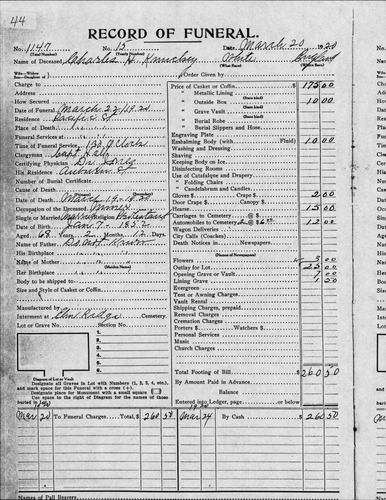 44
RECORD OF FUNERAL.
No. 1147 No. 15 Date March 20 1920
(Total Number) (Yearly Number)
Name of Deceased Charles H. White England
(What Race) (Where Born)
Order Given by
Charge to
Address
How Secured
Date of Funeral March 22 1920
Residence Pacific St
Place of Death
Funeral Services at
Time of Funeral Service 1:30 O'Clock
Clergyman Capt
Certifying Physician Dr.
His Residence Auburn
Number of Burial Certificate
Cause of Death
Date of Death March 19 1920
Occupation of the Deceased
Single or Married Religion
Date of Birth Jan 7 1852
Aged 68 Years 2 Months 12 Days
Name of Father Do Not Know
His Birthplace " "
Name of Mother " "
(Maiden Name)
Her Birthplace
Body to be shipped to
Size and Style of Casket or Coffin
Manufactured by
Interment at Cemetery.
Lot or Grave No. Section No.
Diagram of Lot or Vault
Designate all Graves in Lot with Numbers (1, 2, 3, 4, etc.), and mark space for this Funeral with a cross (+).
Designate place for Monument with a small square
Use space to the right of Diagram for the names of those buried in Lot.
Price of Casket or Coffin 175 00
" Metallic Lining
(State kind)
" Outside Box 10 00
(State kind)
" Burial Robe
(State kind)
" Burial Slippers and Hose
Engraving Plate
Embalming Body (with Fluid) 10 00
Washing and Dressing
Shaving
Keeping Body on Ice
Disinfecting Rooms
Use of Catafalque and Drapery
" Folding Chairs
" Candelabrum and Candles
Gloves $ Crape $ 2 00
Door Crape Canopy $
Hearse 15 00
Carriages to Cemetery @ $
Automobiles to Cemetery 2 @ $6.00 12 00
Wagon Deliveries
City Calls (Coaches)
Death Notices in Newspapers
(Names of Newspapers)
Flowers 3 00
Outlay for Lot 25 00
Opening Grave or Vault 7 00
Lining Grave 1 50
Evergreen
Tent or Awning Charges
Vault Rental
Shipping Charges, prepaid
Removal Charges
Cremation Charges
Porters $ Watchers $
Personal Services
Music
Church Charges
Total Footing of Bill 260 50
By Amount Paid in Advance
Balance
Entered into Ledger, page or below.
1920 1920
Mar 20 To Funeral Charges Total, $ 260 50 Mar 24 By Cash 260 50
Names of Pall Bearers